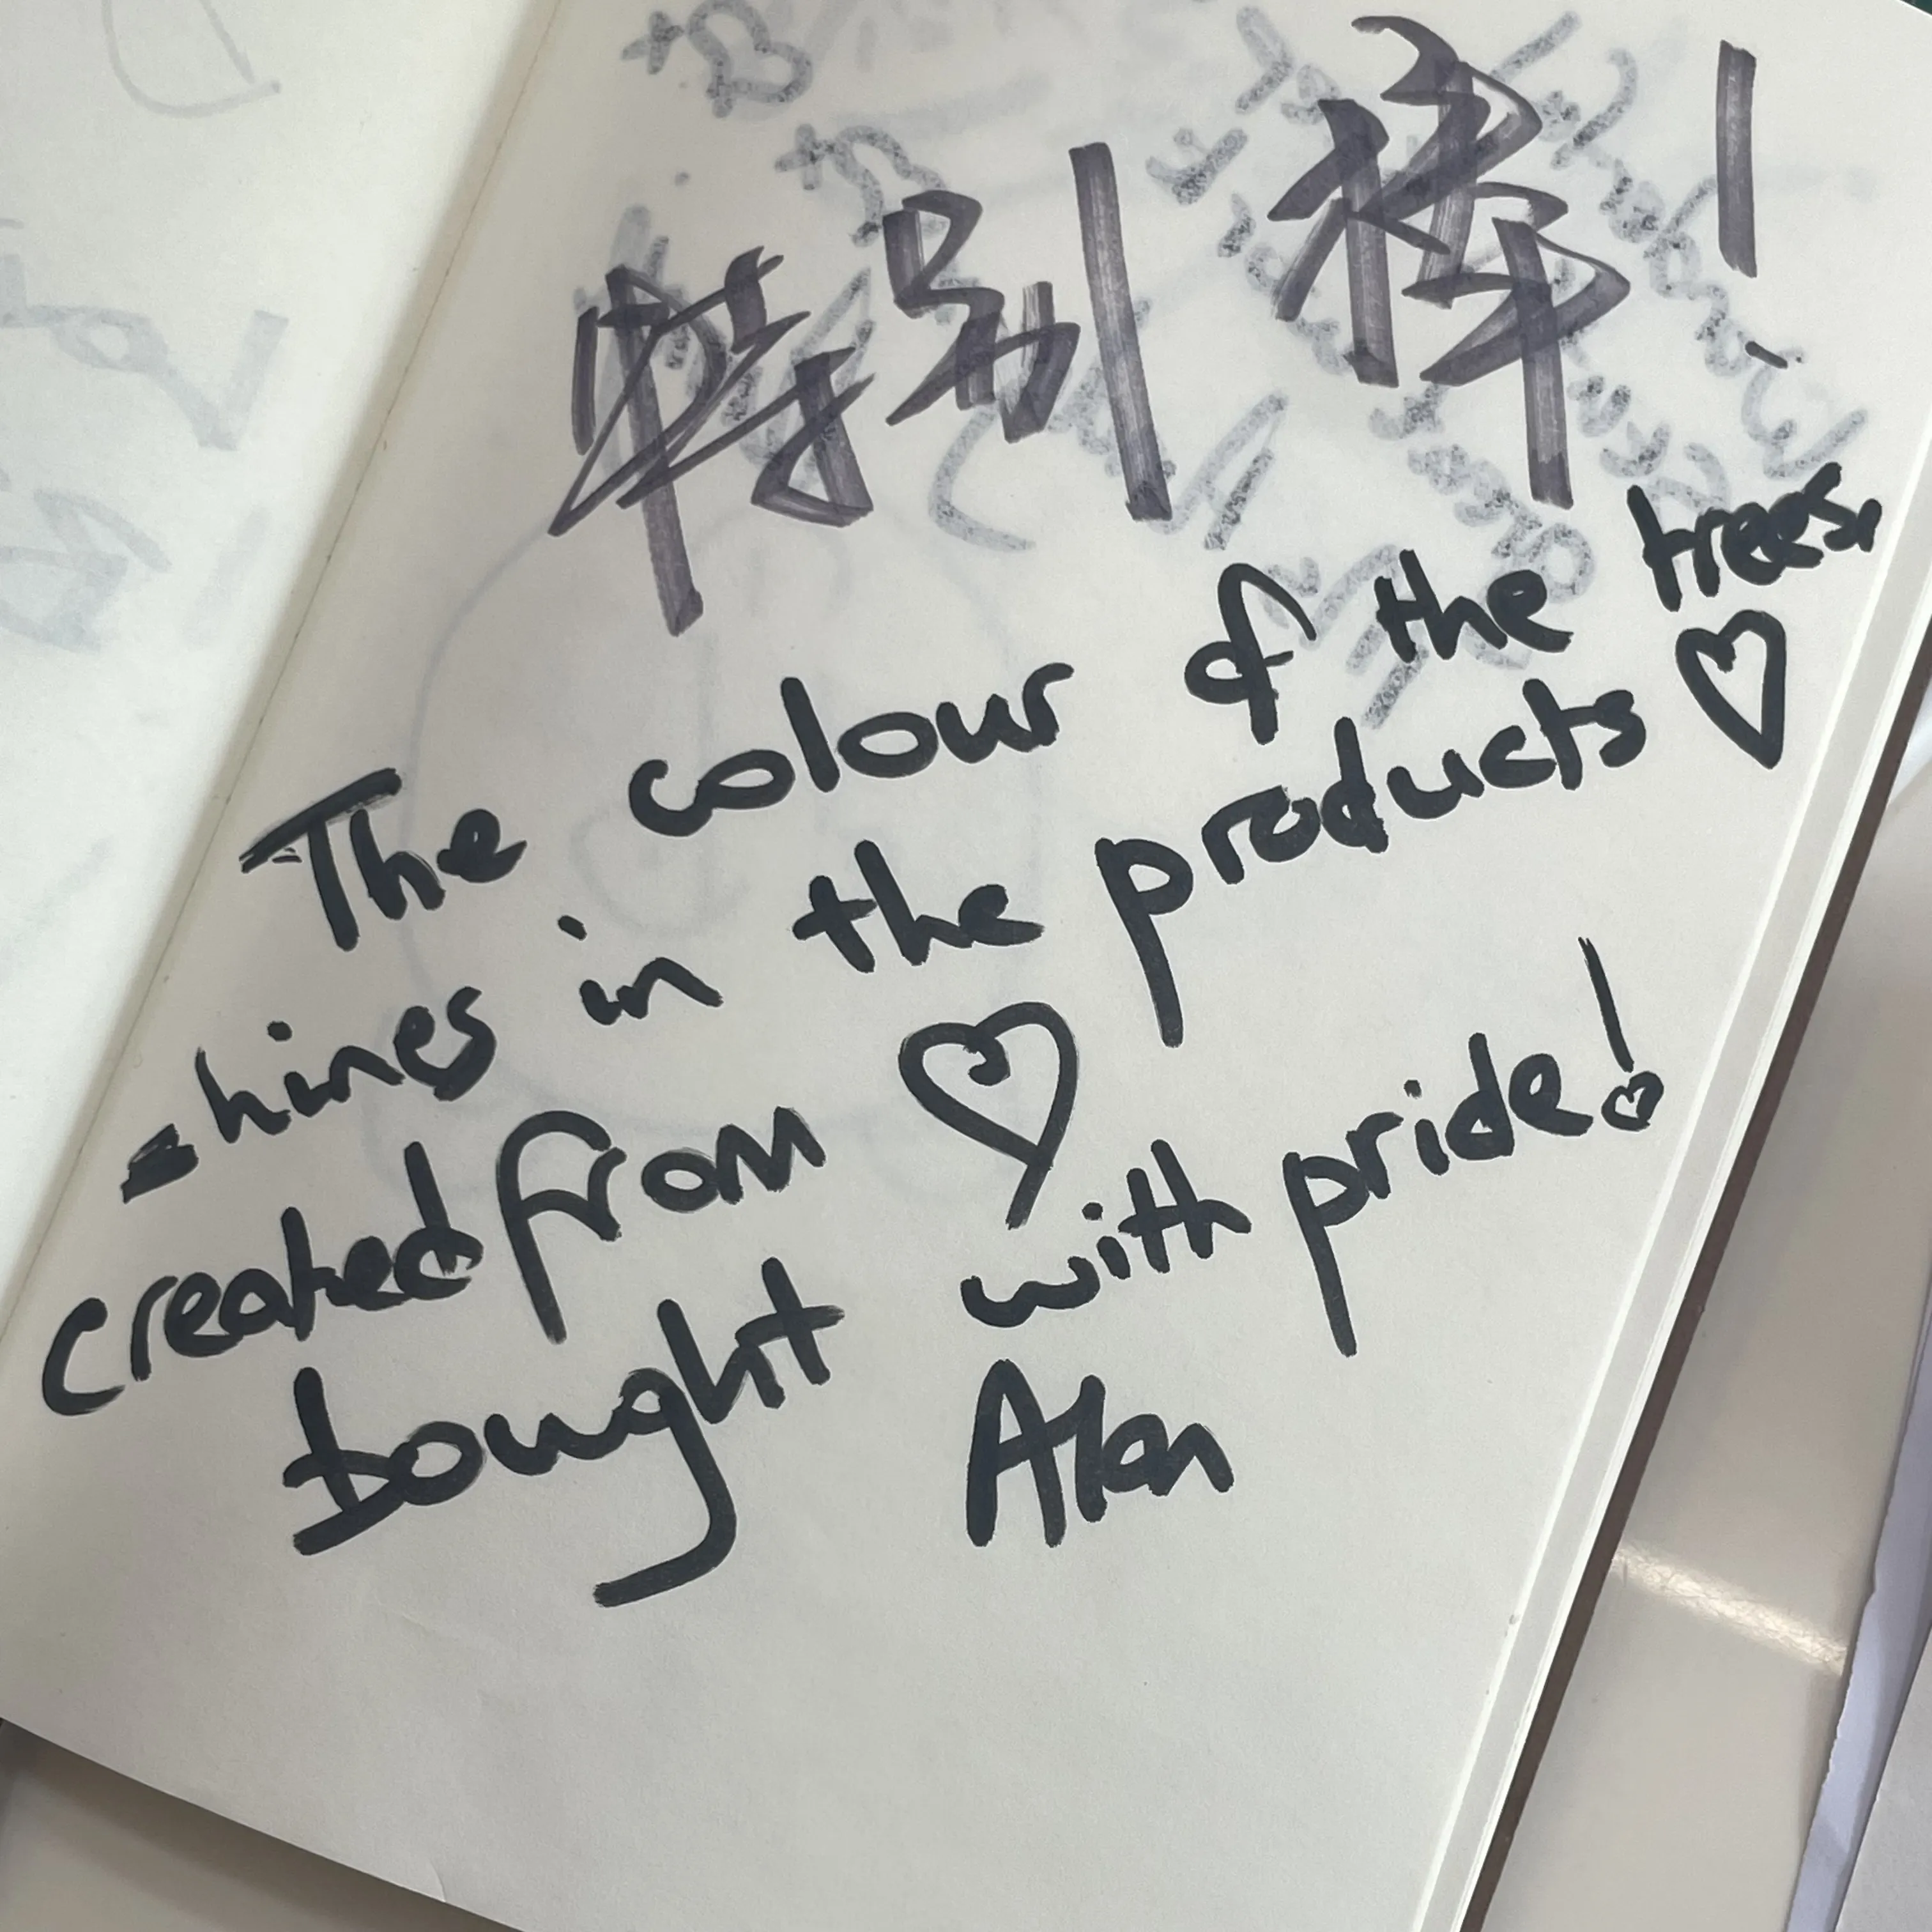 特别棒!
The colour of the trees
shines in the products ♡
created from ♡
bought with pride!
Alan